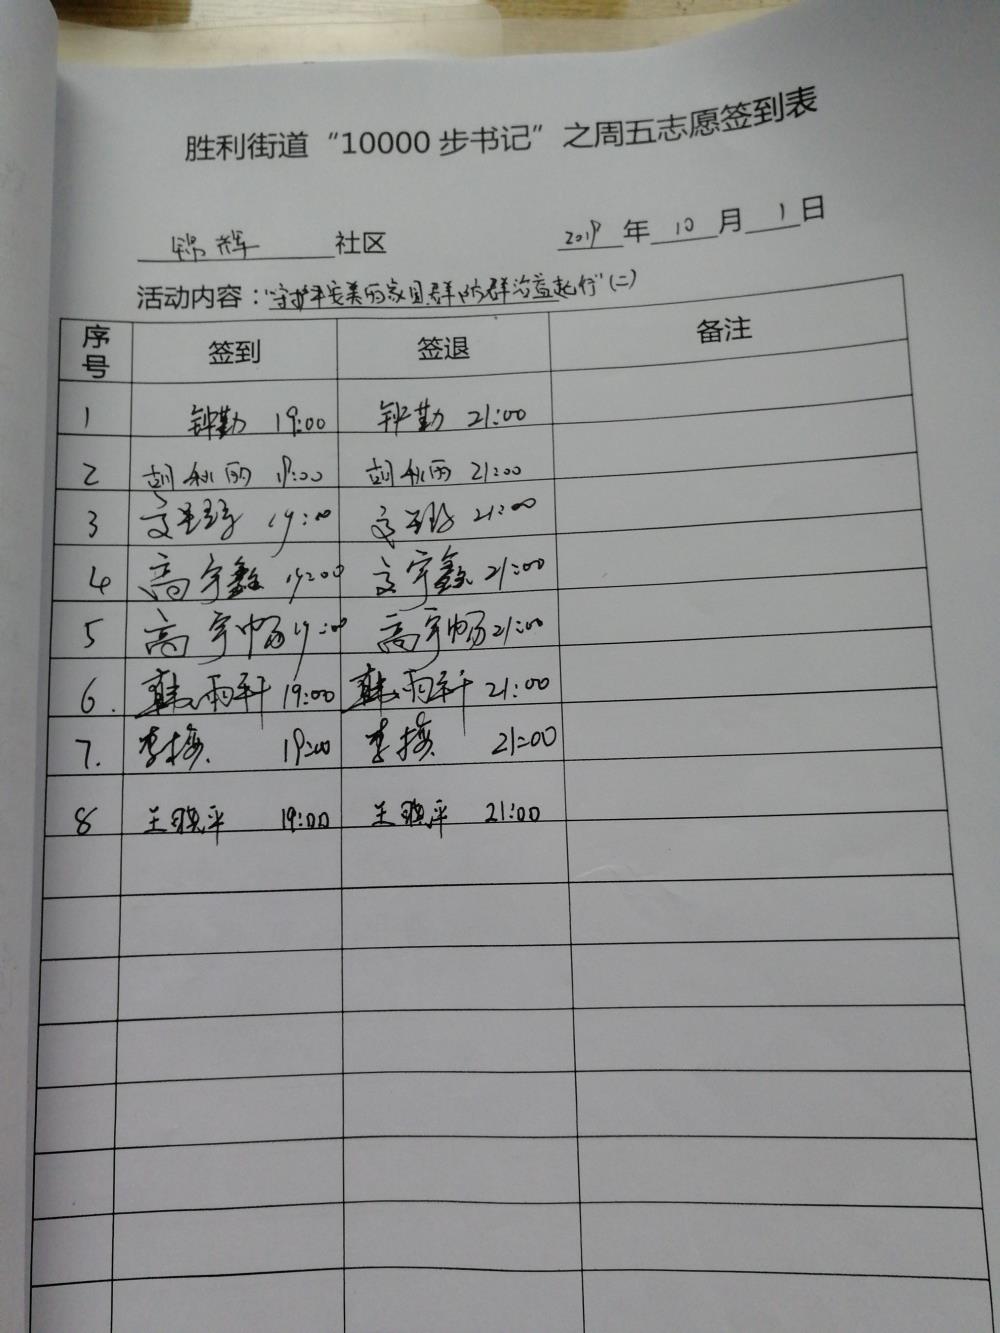 胜利街道“10000步书记”之周五志愿签到表
锦辉社区 2019年10月1日
活动内容：“守护平安美丽家园群防群治益起行”(二)
序号 签到 签退 备注
1 钟勤 19:00 钟勤 21:00
2 胡秋丽 19:00 胡秋丽 21:00
3 19:00 21:00
4 高宇鑫 19:00 高宇鑫 21:00
5 高宇畅 19:00 高宇畅 21:00
6. 韩雨轩 19:00 韩雨轩 21:00
7. 李梅 19:00 李梅 21:00
8 王晓平 19:00 王晓平 21:00